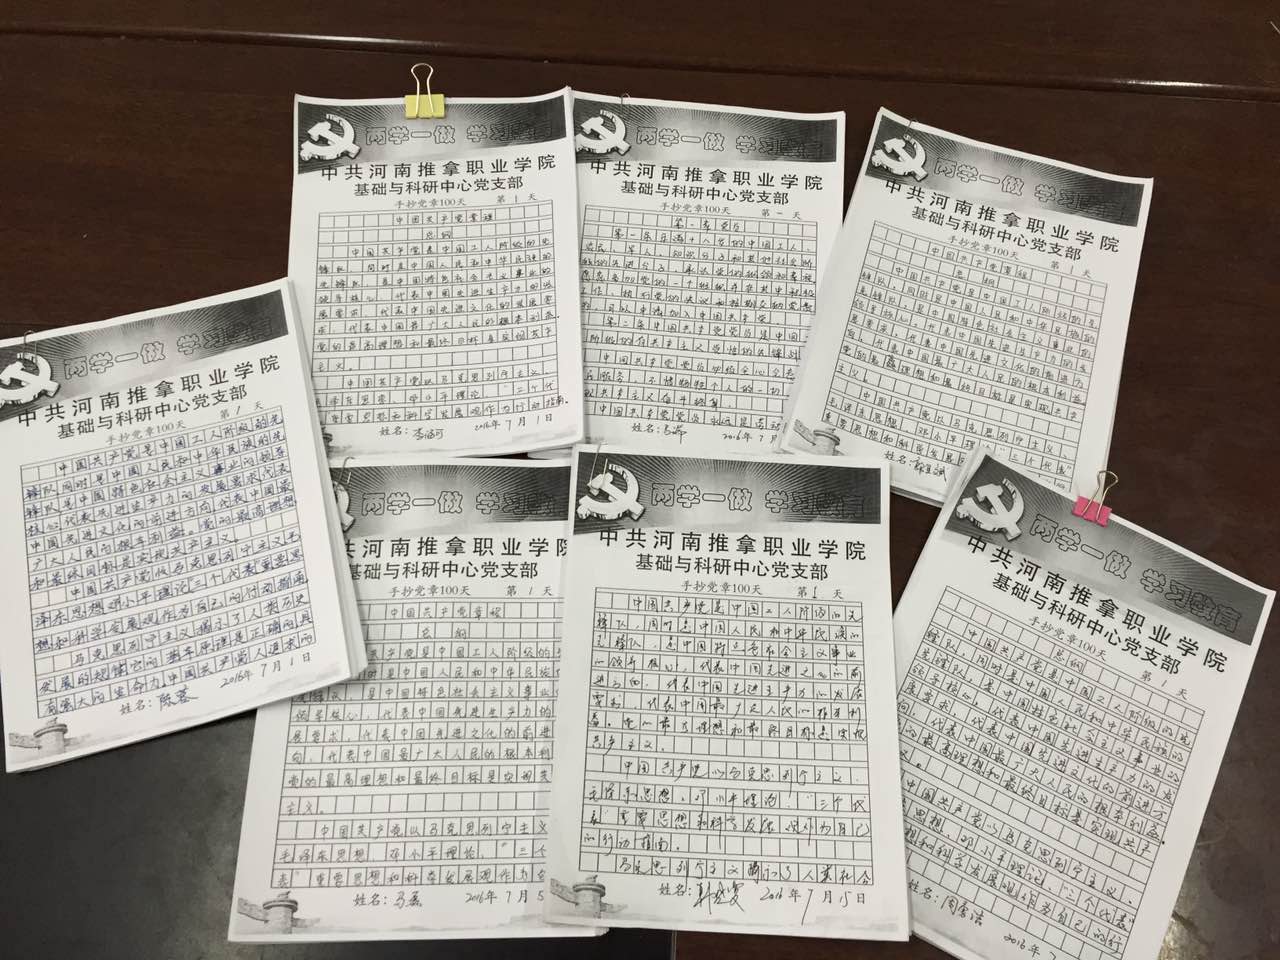 两学一做 学习教育
中共河南推拿职业学院
基础与科研中心党支部
手抄党章100天 第1天
中国共产党章程
总纲
中国共产党是中国工人阶级的先
锋队，同时是中国人民和中华民族的
先锋队，是中国特色社会主义事业的
领导核心，代表中国先进生产力的发
展要求，代表中国先进文化的前进方
向，代表中国最广大人民的根本利益。
党的最高理想和最终目标是实现共产
主义。
中国共产党以马克思列宁主义、
毛泽东思想、邓小平理论、“三个代
表”重要思想和科学发展观作为行动指南。
姓名：
2016年7月1日
两学一做 学习教育
中共河南推拿职业学院
基础与科研中心党支部
手抄党章100天 第一天
第一章 党员
第一条 年满十八岁的中国工人、
农民、军人、知识分子和其他社会阶
层的先进分子，承认党的纲领和章程，
愿意参加党的一个组织并在其中积极
工作、执行党的决议和按期交纳党费
的，可以申请加入中国共产党。
第二条 中国共产党党员是中国工
人阶级的有共产主义觉悟的先锋战
中国共产党党员必须全心全意
姓名：马
2016年7月
两学一做 学习教育
中共河南推拿职业学院
基础与科研中心党支部
手抄党章100天 第1天
中国共产党章程
总纲
中国共产党是中国工人阶级的先
锋队，同时是中国人民和中华民族的
先锋队，是中国特色社会主义事业的
领导核心，代表中国先进生产力的发
展要求，代表中国先进文化的前进方
向，代表中国最广大人民的根本利益。
党的最高理想和最终目标是实现共产
主义。
中国共产党以马克思列宁主义、
毛泽东思想、邓小平理论、“三个代表”
重要思想和科学发展观
姓名：
两学一做 学习教育
中共河南推拿职业学院
基础与科研中心党支部
手抄党章100天 第1天
中国共产党是中国工人阶级的先
锋队同时是中国人民和中华民族的先
锋队是中国特色社会主义事业的领导
核心代表先进生产力的发展要求代表
中国先进文化的前进方向代表中国最
广大人民的根本利益。党的最高理想
和最终目标是实现共产主义。
中国共产党以马克思列宁主义毛
泽东思想邓小平理论三个代表重要思
想和科学发展观作为自己的行动指南。
马克思列宁主义揭示了人类历史
发展的规律它的基本原理是正确的具
有强大的生命力中国共产党人追求的
姓名：陈蓉
2016年7月1日
两学一做 学习教育
中共河南推拿职业学院
基础与科研中心党支部
手抄党章100天 第1天
中国共产党章程
总纲
中国共产党是中国工人阶级的先
锋队，同时是中国人民和中华民族
先锋队，是中国特色社会主义事业
领导核心，代表中国先进生产力的
展要求，代表中国先进文化的前进
向，代表中国最广大人民的根本利
党的最高理想和最终目标是实现共
主义。
中国共产党以马克思列宁主义
毛泽东思想、邓小平理论、“三个
表”重要思想和科学发展观作为
姓名：马磊
2016年7月5
两学一做 学习教育
中共河南推拿职业学院
基础与科研中心党支部
手抄党章100天 第1天
中国共产党是中国工人阶级的先
锋队，同时是中国人民和中华民族的
先锋队，是中国特色社会主义事业
的领导核心，代表中国先进文化的前
进方向，代表中国先进生产力的发展
要求，代表中国最广大人民的根本利
益。党的最高理想和最终目标是实现
共产主义。
中国共产党以马克思列宁主义、
毛泽东思想、邓小平理论、“三个代
表”重要思想和科学发展观作为自己
的行动指南。
马克思列宁主义揭示了人类社会
姓名：
2016年7月15日
两学一做 学习教育
中共河南推拿职业学院
基础与科研中心党支部
手抄党章100天 第1天
总纲
中国共产党是中国工人阶级的先
锋队，同时是中国人民和中华民族的
先锋队，是中国特色社会主义事业的
领导核心，代表中国先进生产力的发
展要求，代表中国先进文化的前进方
向，代表中国最广大人民的根本利益
。党的最高理想和最终目标是实现共产
中国共产党以马克思列宁主义、
思想、邓小平理论、“三个代表”
想和科学发展观作为自己的行
姓名：周雪洁
2016年7